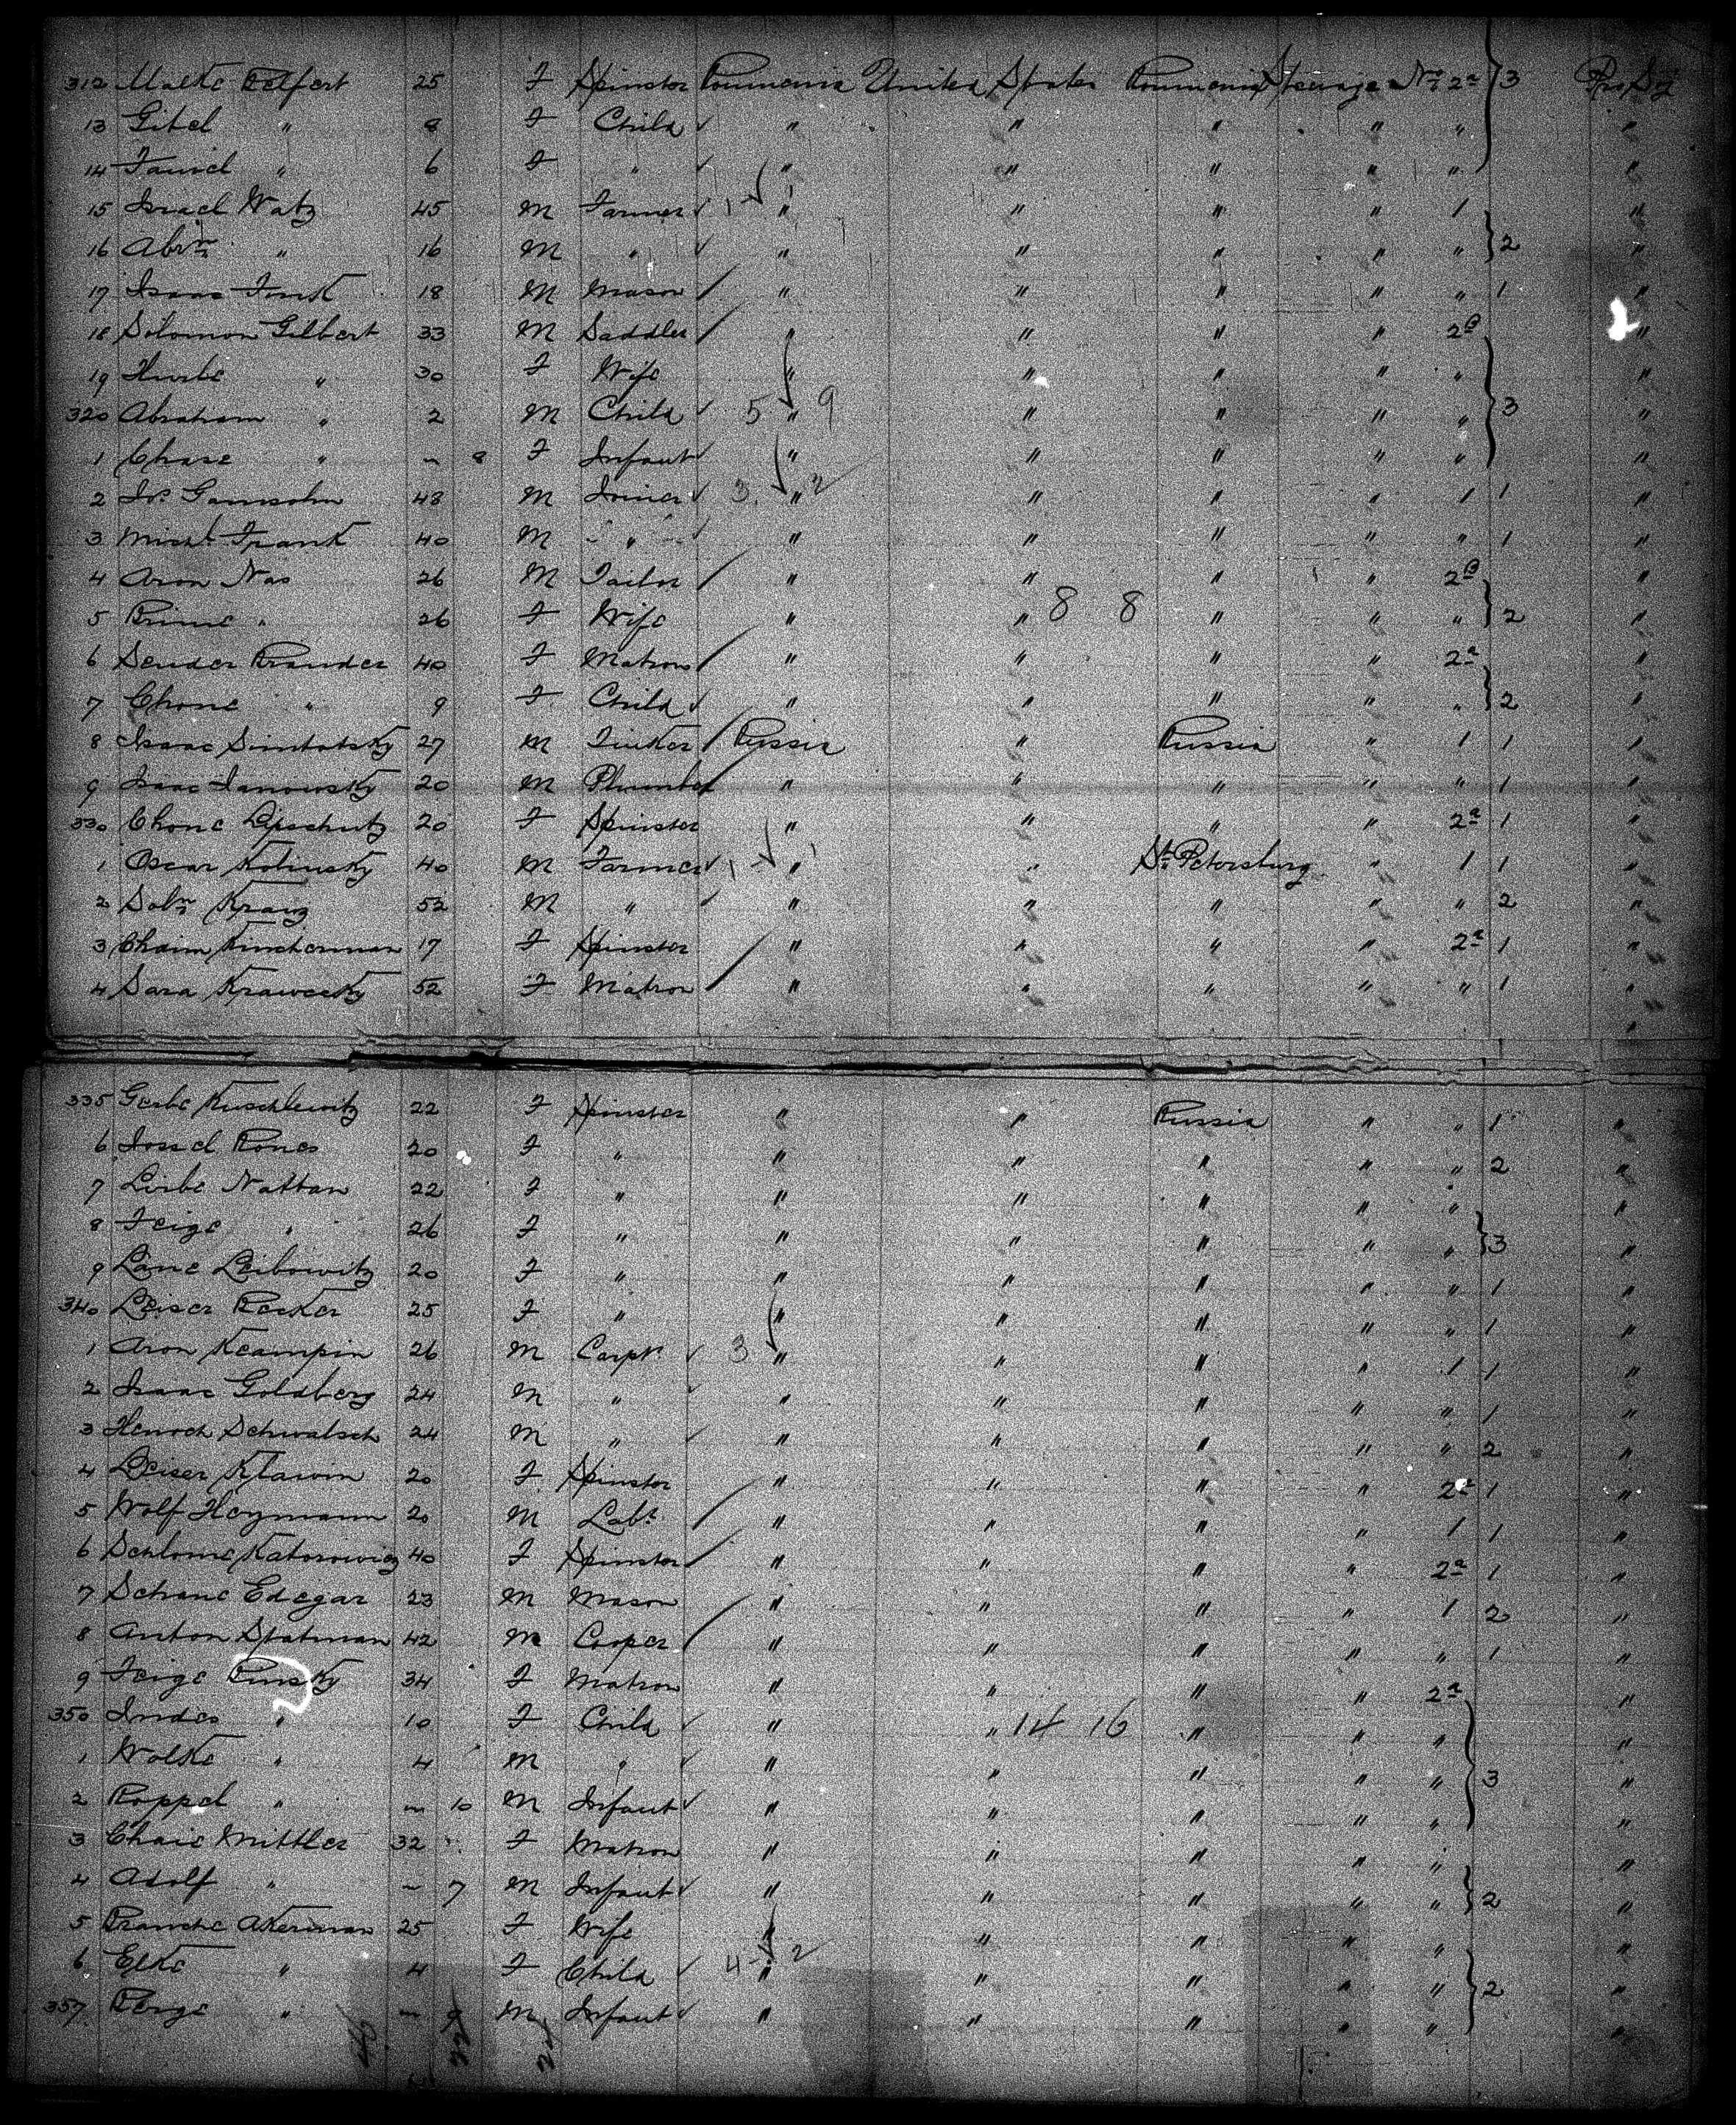 312 Malke Felfert 25 F Spinster Roumania United States Roumania Steerage No 2a 3 Pro Sj
13 Gitel " 8 F Child " " " " " "
14 " 6 F " " " " " " "
15 Israel Watz 45 M Farmer " " " " 1 "
16 Abrm " 16 M " " " " " " 2 "
17 Isaac Funk 18 M Mason " " " " " 1 "
18 Solomon Gilbert 33 M Saddler " " " " 2B "
19 " 30 F Wife " " " " " "
320 Abraham " 2 M Child 5 " 9 " " " " 3 "
1 Chase " ~ 8 F Infant " " " " " "
2 Js. Gamsohn 48 M Joiner 3 " 2 " " " 1 1 "
3 Mich. Frank 40 M " " " " " " 1 "
4 Aron Nas 26 M Tailor " " " " 2B "
5 " 26 F Wife " " 8 8 " " " 2 "
6 Sender Brander 40 F Matron " " " " 2a "
7 Chone " 9 F Child " " " " " 2 "
8 Isaac 27 M Tinker Russia " Russia " 1 1 "
9 Isaac Janowsky 20 M Plumber " " " " " 1 "
330 Chone Lipschutz 20 F Spinster " " " " 2a 1 "
1 Oscar Kolinsky 40 M Farmer " " St. Petersburg " 1 1 "
2 Solm 52 M " " " " " " 2 "
3 Chaim 17 F Spinster " " " " 2a 1 "
4 Sara Krawcetzky 52 F Matron " " " " " 1 "
335 Gerbe Kuschlewitz 22 F Spinster " " Russia " " 1 "
6 Rones 20 F " " " " " " 2 "
7 Leibe Nattan 22 F " " " " " " "
8 Feige " 26 F " " " " " " 3 "
9 Lane Leibowitz 20 F " " " " " " 1 "
340 Leiser Becker 25 F " " " " " " 1 "
1 Aron Keampin 26 M Carptr 3 " " " " 1 1 "
2 Isaac Goldberg 24 M " " " " " " 1 "
3 Henoch Schwalsch 24 M " " " " " " 2 "
4 Leiser Klawin 20 F Spinster " " " " 2a 1 "
5 Wolf Heymann 20 M Labr " " " " 1 1 "
6 Schlome Katorowicz 40 F Spinster " " " " 2a 1 "
7 Schane Edegar 23 M Mason " " " " 1 2 "
8 Anton Statman 42 M Cooper " " " " " 1 "
9 Feige Pinsky 34 F Matron " " " " 2a "
350 " 10 F Child " " 14 16 " " " "
1 Wolke " 4 M " " " " " " 3 "
2 Koppel " ~ 10 M Infant " " " " " "
3 Chaie Mittler 32 F Matron " " " " " "
4 Adolf " ~ 7 M Infant " " " " " 2 "
5 Akerman 25 F Wife " " " " " "
6 Elke " 4 F Child 4 " 2 " " " " 2 "
357 " ~ 9 M Infant " " " " " "